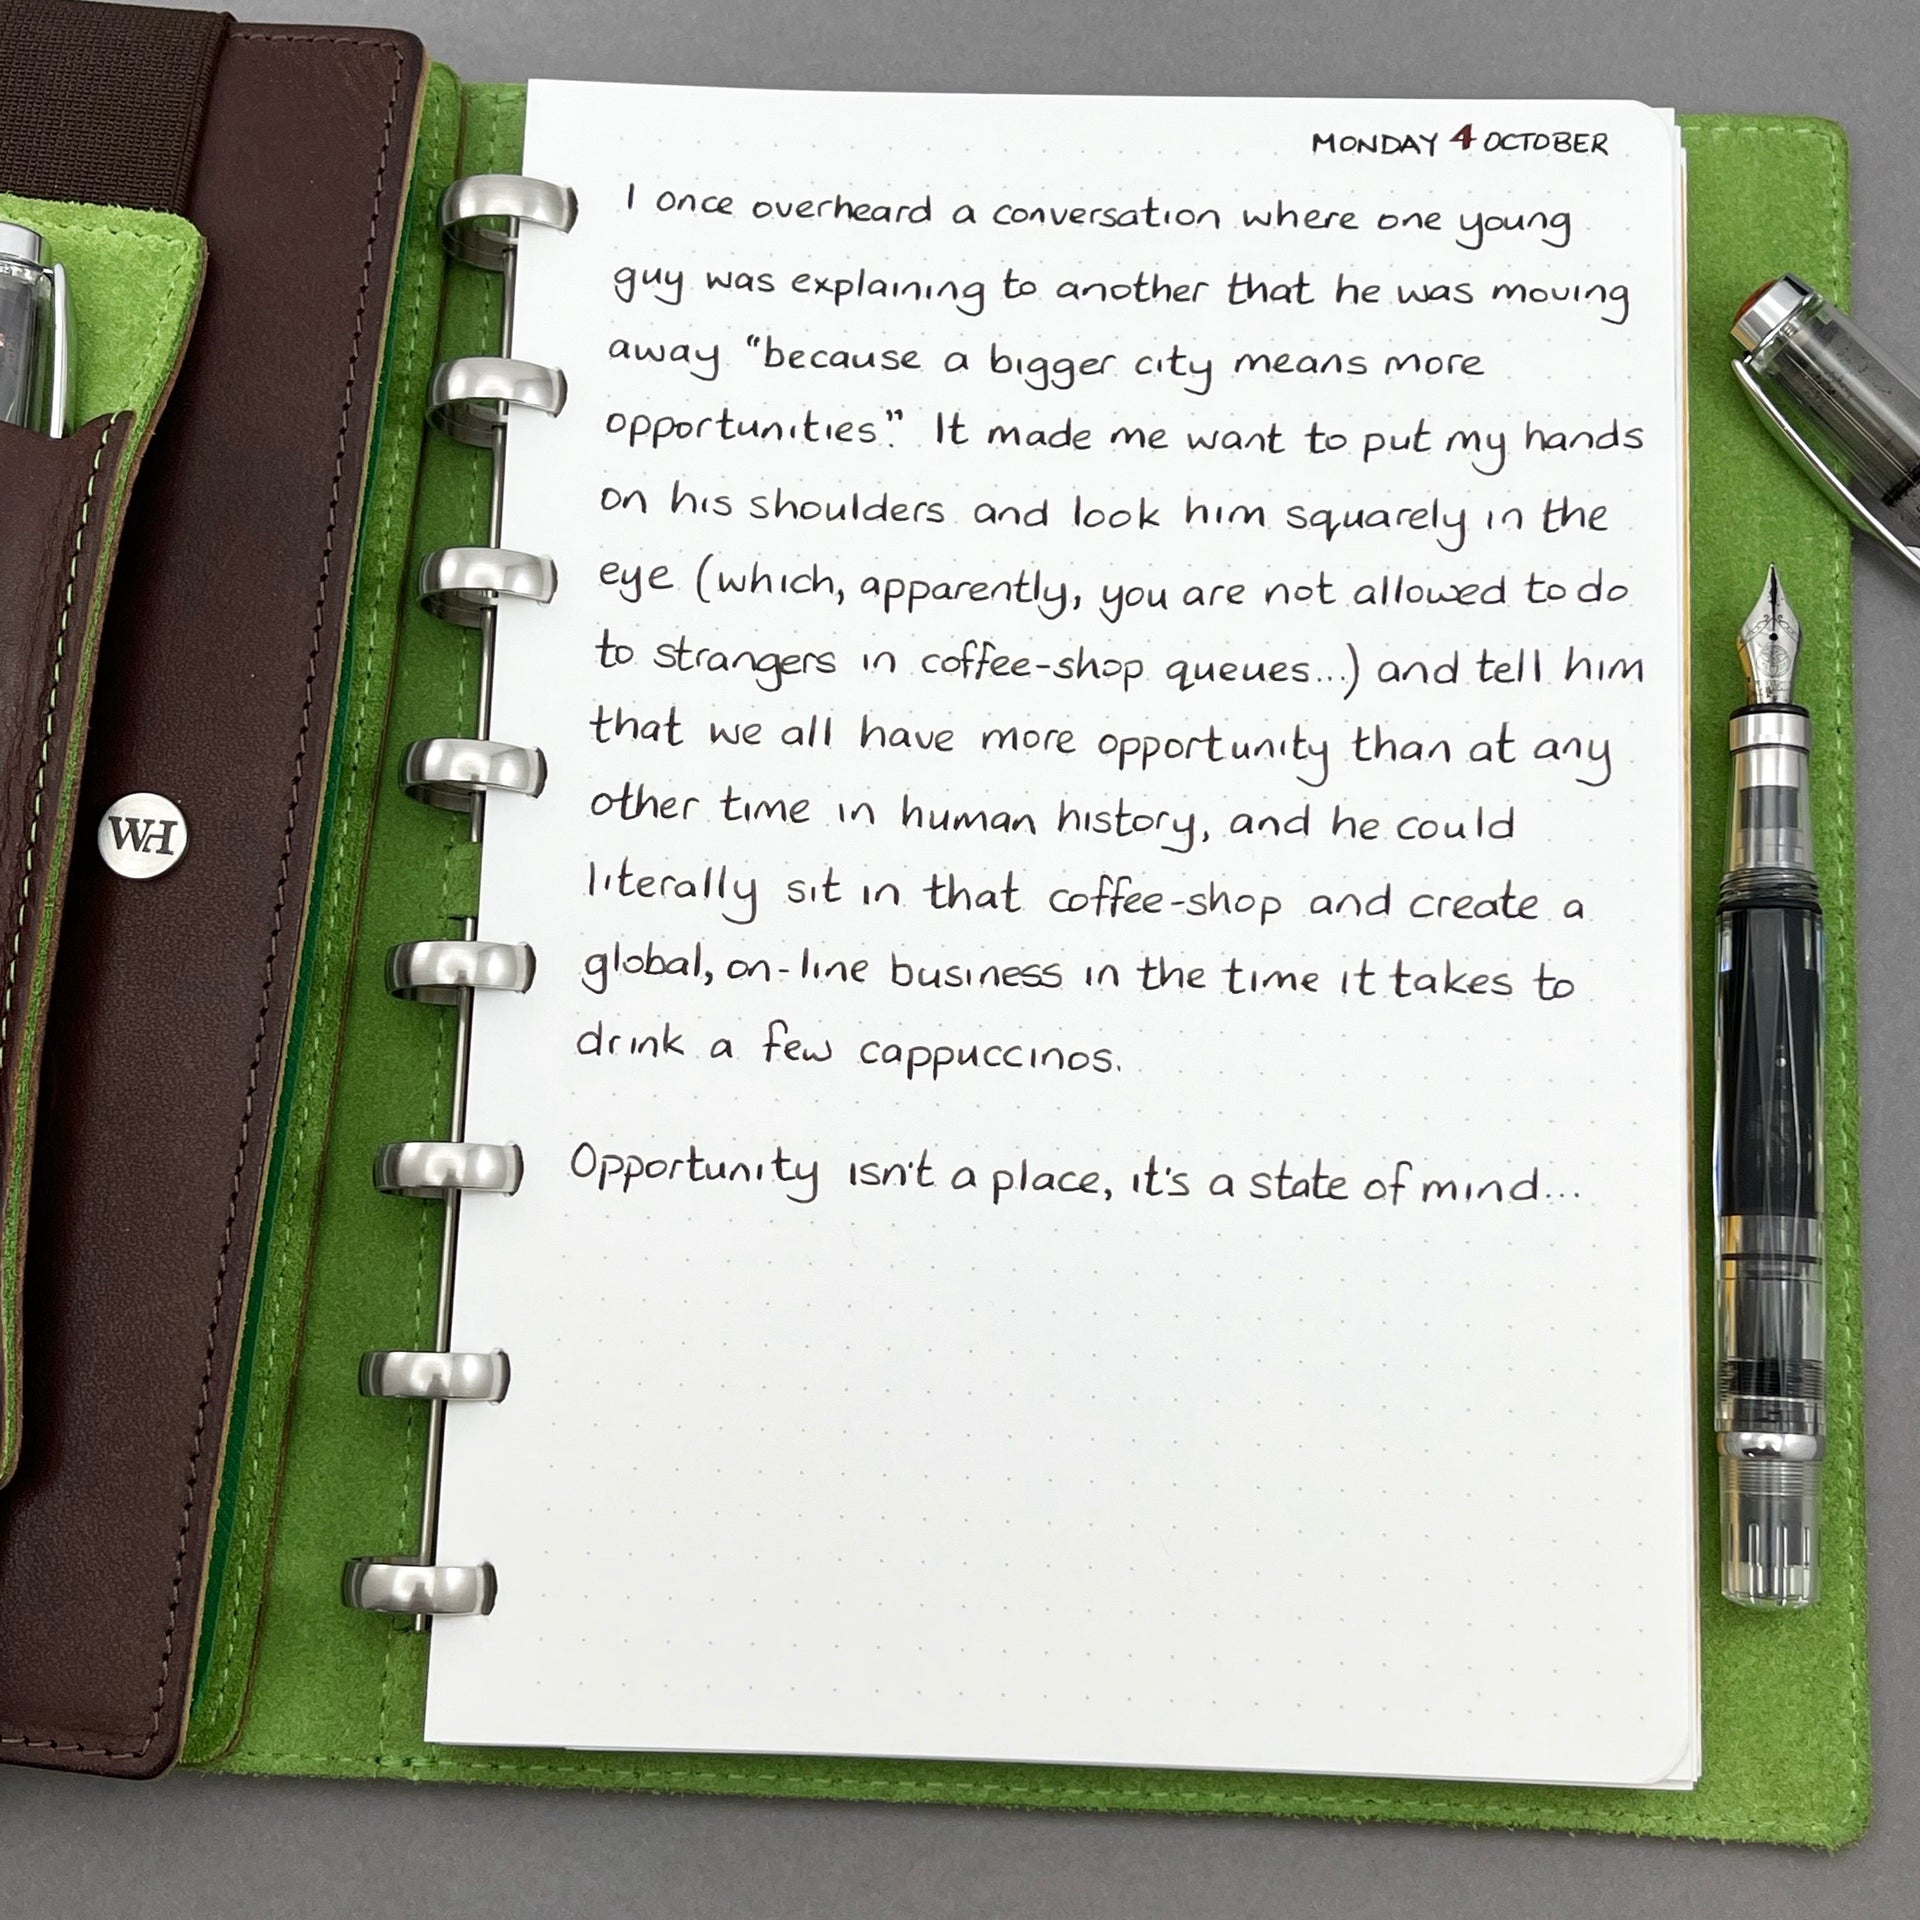 MONDAY 4 OCTOBER
I once overheard a conversation where one young
guy was explaining to another that he was moving
away "because a bigger city means more
opportunities." It made me want to put my hands
on his shoulders and look him squarely in the
eye (which, apparently, you are not allowed to do
to strangers in coffee-shop queues...) and tell him
that we all have more opportunity than at any
other time in human history, and he could
literally sit in that coffee-shop and create a
global, on-line business in the time it takes to
drink a few cappuccinos.
Opportunity isn't a place, it's a state of mind...
WH